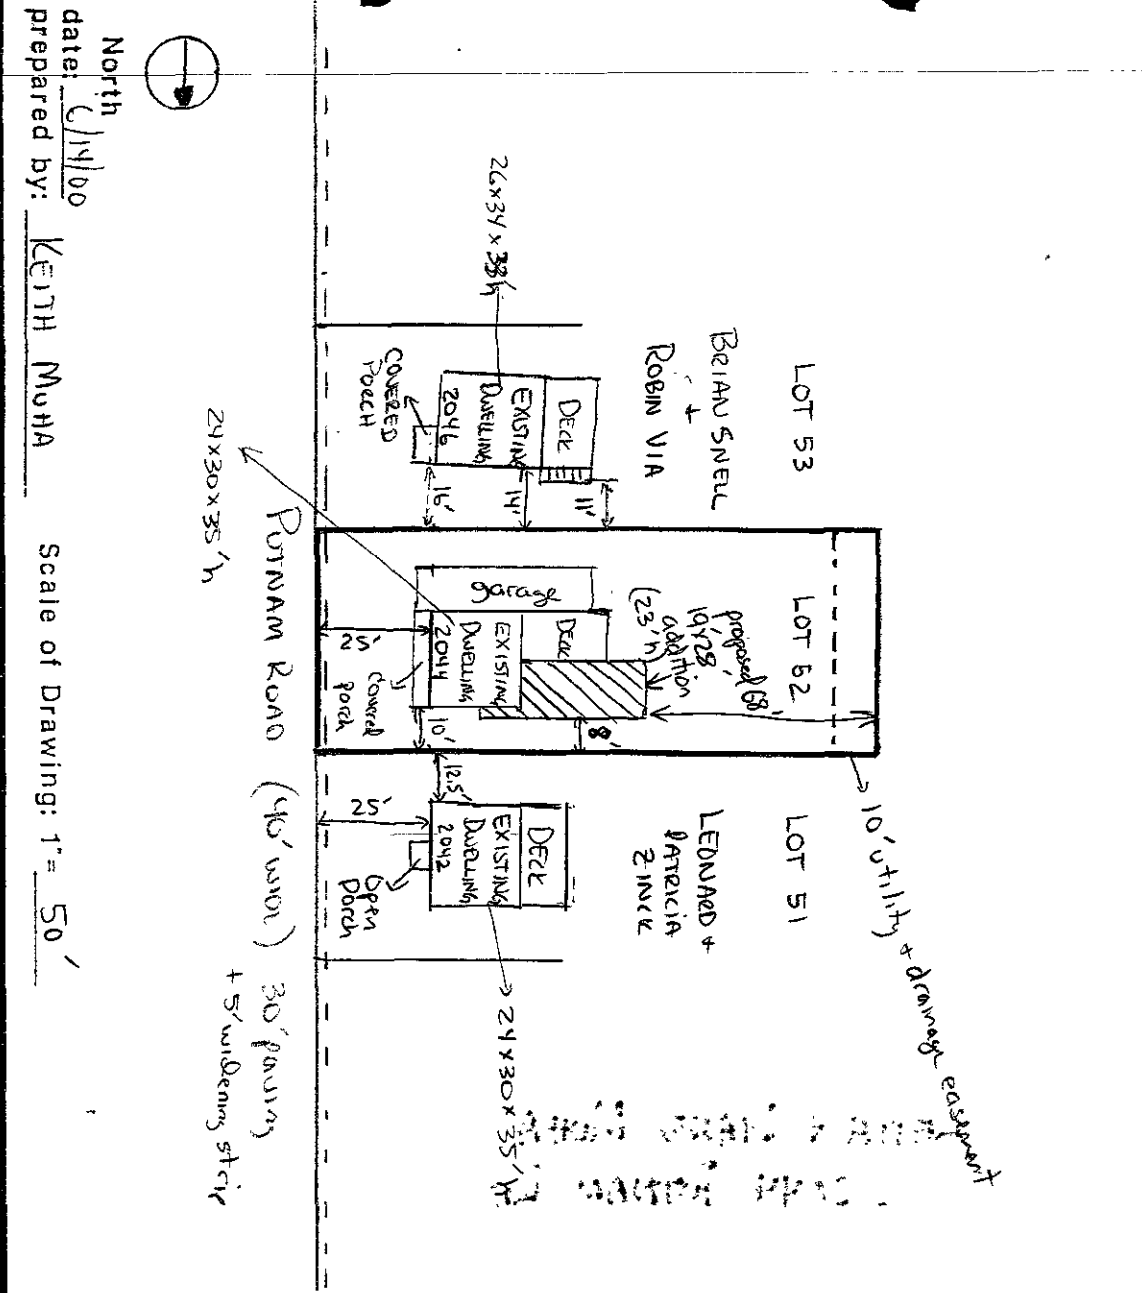 LOT 53
BRIAN SNELL
+
ROBIN VIA
26x34x33'h
DECK
EXISTING
DWELLING
2046
COVERED
PORCH
11'
14'
16'
LOT 52
proposed
19'x28'
addition
(23'h)
68'
garage
DECK
EXISTING
DWELLING
2044
Covered
porch
25'
10'
8'
24x30x35'h
LOT 51
LEONARD +
PATRICIA
ZINCK
12.5'
DECK
EXISTING
DWELLING
2042
Open
Porch
25'
24x30x35'h
10' utility + drainage easement
PUTNAM ROAD (40' wide) 30' paving
+ 5' widening strip
North
date: 6/14/00
prepared by: KEITH MUHA
Scale of Drawing: 1"= 50'